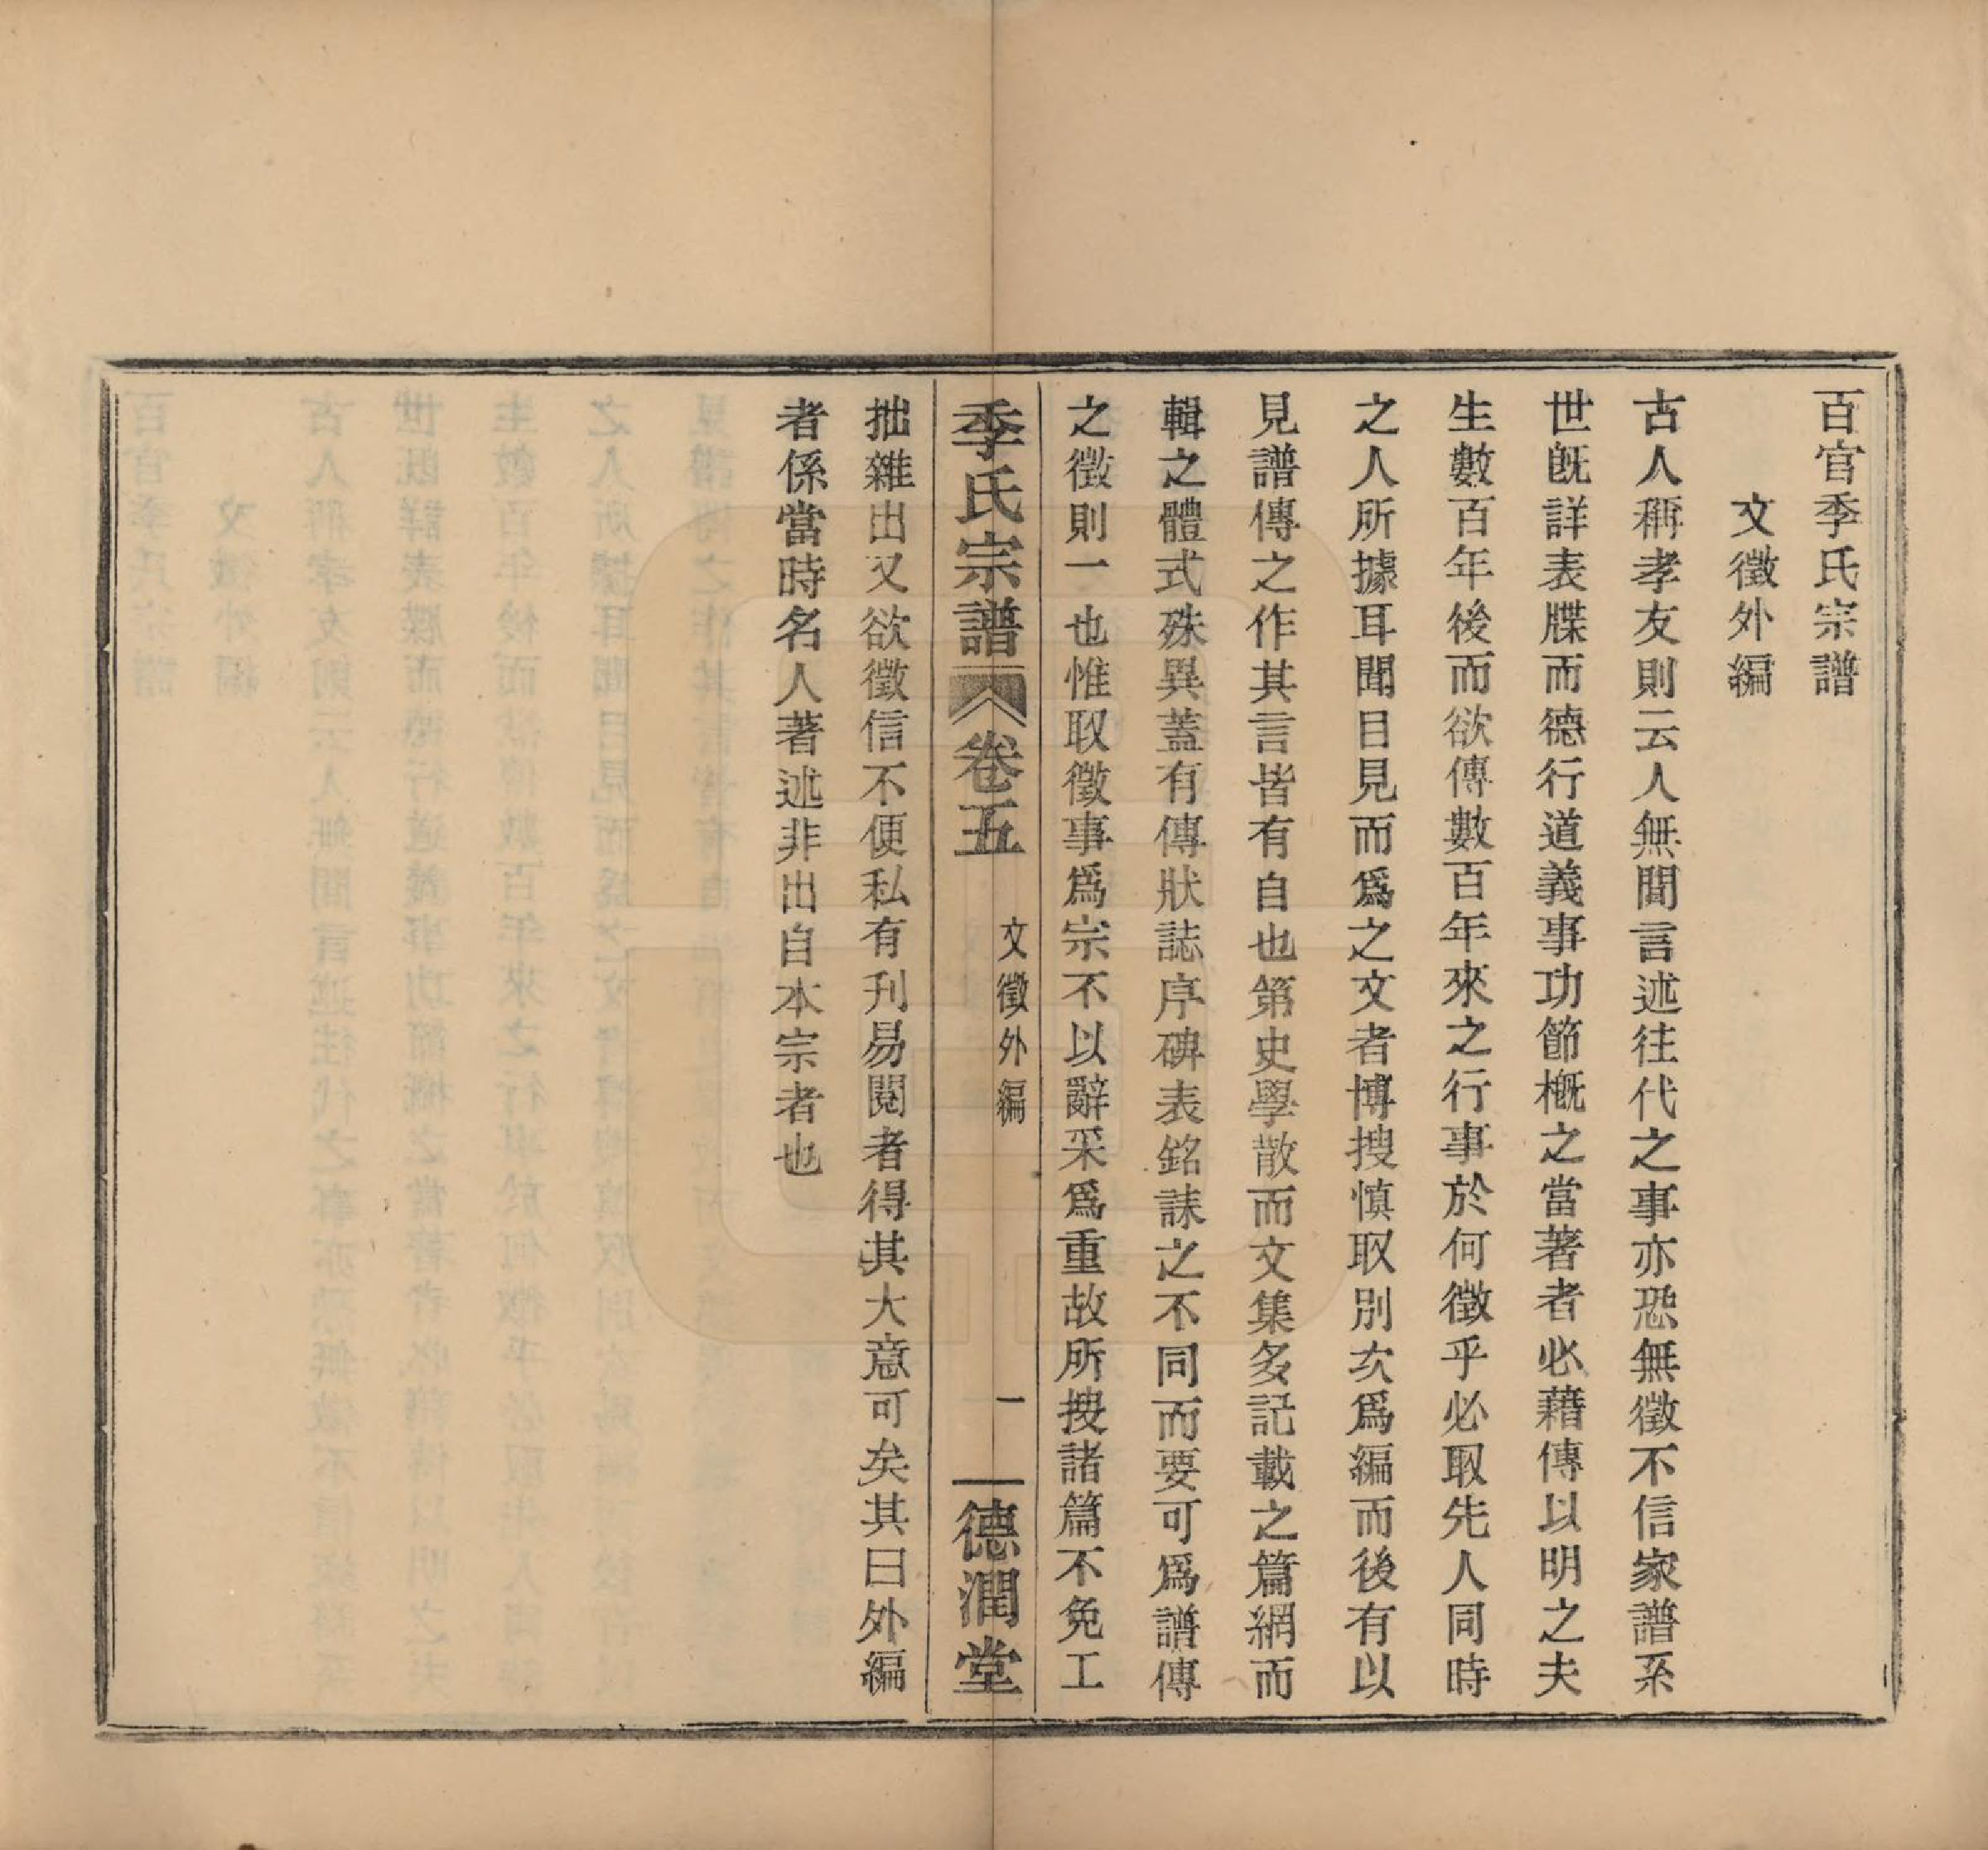 百官季氏宗譜
文徵外編
古人稱孝友則云人無間言述往代之事亦恐無徵不信家譜系
世旣詳表牒而德行道義事功節槪之當著者必藉傳以明之夫
生數百年後而欲傳數百年來之行事於何徵乎必取先人同時
之人所據耳聞目見而爲之文者博搜愼取別次爲編而後有以
見譜傳之作其言皆有自也第史學散而文集多記載之篇網而
輯之體式殊異蓋有傳狀誌序碑表銘誄之不同而要可爲譜傳
之徵則一也惟取徵事爲宗不以辭采爲重故所搜諸篇不免工
季氏宗譜 卷五 文徵外編 一 德潤堂
拙雜出又欲徵信不便私有刋易閱者得其大意可矣其曰外編
者係當時名人著述非出自本宗者也